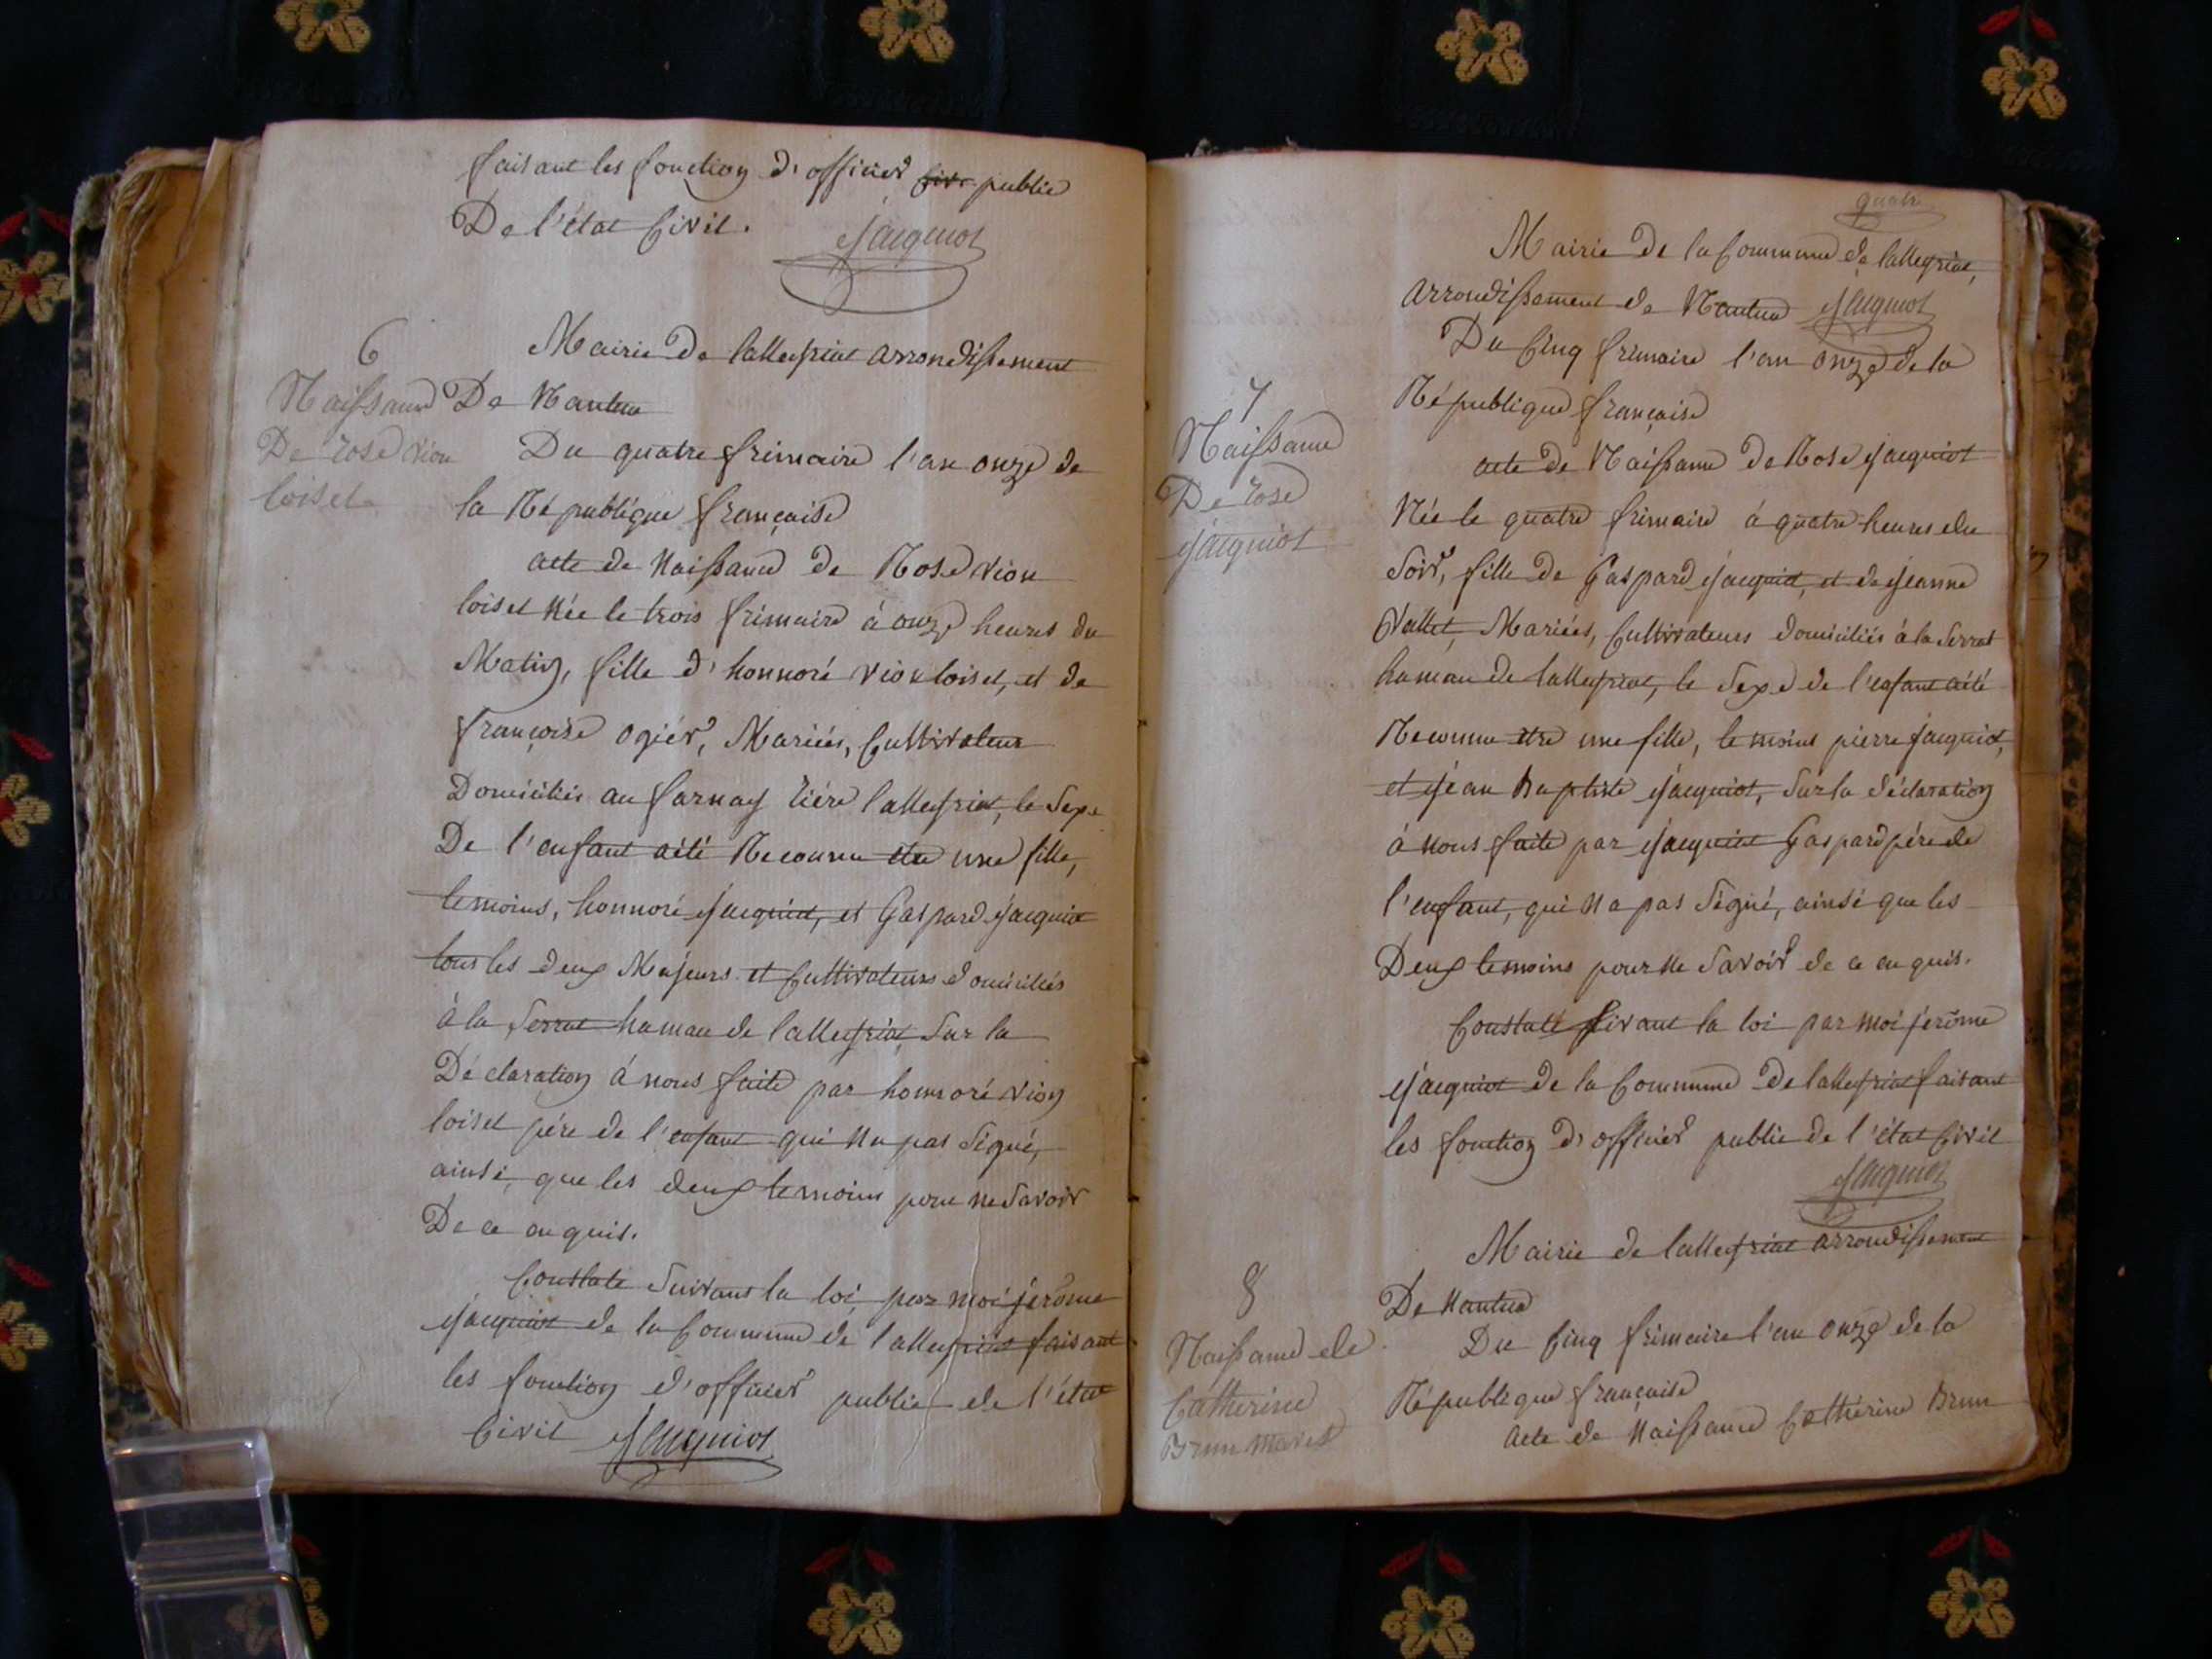 faisant les fonction d'officier civ. public
De l'état Civil.
Jacquiot
6
Mairie De lalleyriat arrondissement
De Nantua
Naissance
De rose vion
loiset
Du quatre frimaire l'an onze de
la République française
acte de Naissance de Rose vion
loiset Née le trois frimaire à onze heures du
Matin, fille d'honnoré vion loiset, et de
françoise ogier, Mariées, Cultivateur
Domiciliés au farnay riére lalleyriat, le Sexe
De l'enfant aété Reconnu etre une fille,
temoins, honnoré jacquiot, et Gaspard jacquiot
tous les deux Majeurs et Cultivateurs domiciliés
à la Serrat hamau de lalleyriat, Sur la
Déclaration à nous faite par honnoré vion
loiset pére de l'enfant qui Na pas Signé,
ainsi, que les deux temoins pour ne Savoir
De ce enquis.
Constaté Suivant la loi par moi jerôme
jacquiot de la Commune de lalleyriat faisant
les fonction d'officier public de l'état
Civil Jacquiot
quatre
Mairie De la Commune de lalleyriat,
arrondissement de Nantua Jacquiot
Du Cinq frimaire l'an onze de la
République française
7
Naissance
De rose
jacquiot
acte de Naissance De Rose jacquiot
Née le quatre frimaire à quatre heures du
Soir, fille de Gaspard jacquiot, et de jeanne
Vallet, Mariées, Cultivateurs domiciliés à la Serrat
hamau de lalleyriat, le Sexe de l'enfant aété
Reconnu etre une fille, temoins pierre jacquiot,
et jéan Baptiste jacquiot, Sur la déclaration
à nous faite par jacquiot Gaspard pére de
l'enfant, qui Na pas Signé, ainsi que les
Deux temoins pour Ne Savoir de ce enquis.
Constaté Sivant la loi par moi jerôme
jacquiot de la Commune De lalleyriat faisant
les fonction d'officier public de l'état Civil
Jacquiot
Mairie de lalleyriat arrondissement
De Nantua
8
Naissance de
Catherine
Brun Maret
Du Cinq frimaire l'an onze de la
République française
Acte de Naissance Cathérine Brun